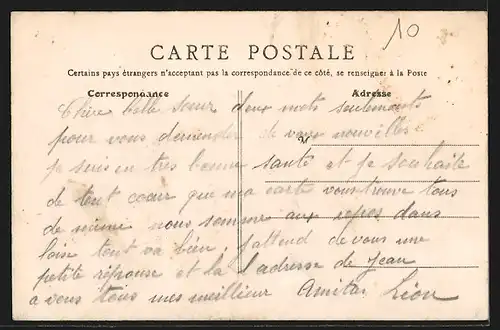 10
CARTE POSTALE
Certains pays étrangers n'acceptant pas la correspondance de ce côté, se renseigner à la Poste
Correspondance
Adresse
Chère belle sœur deux mots seulements
pour vous demender de vous nouvelles
M
je suis en très bonne santé et je souhaite
de tout coeur que ma carte vous trouve tous
de même nous sommes aux repos dans
loise tout va bien. j'attend de vous une
petite réponse et la l'adresse de Jean
a vous tous mes meilleur Amitas Léon